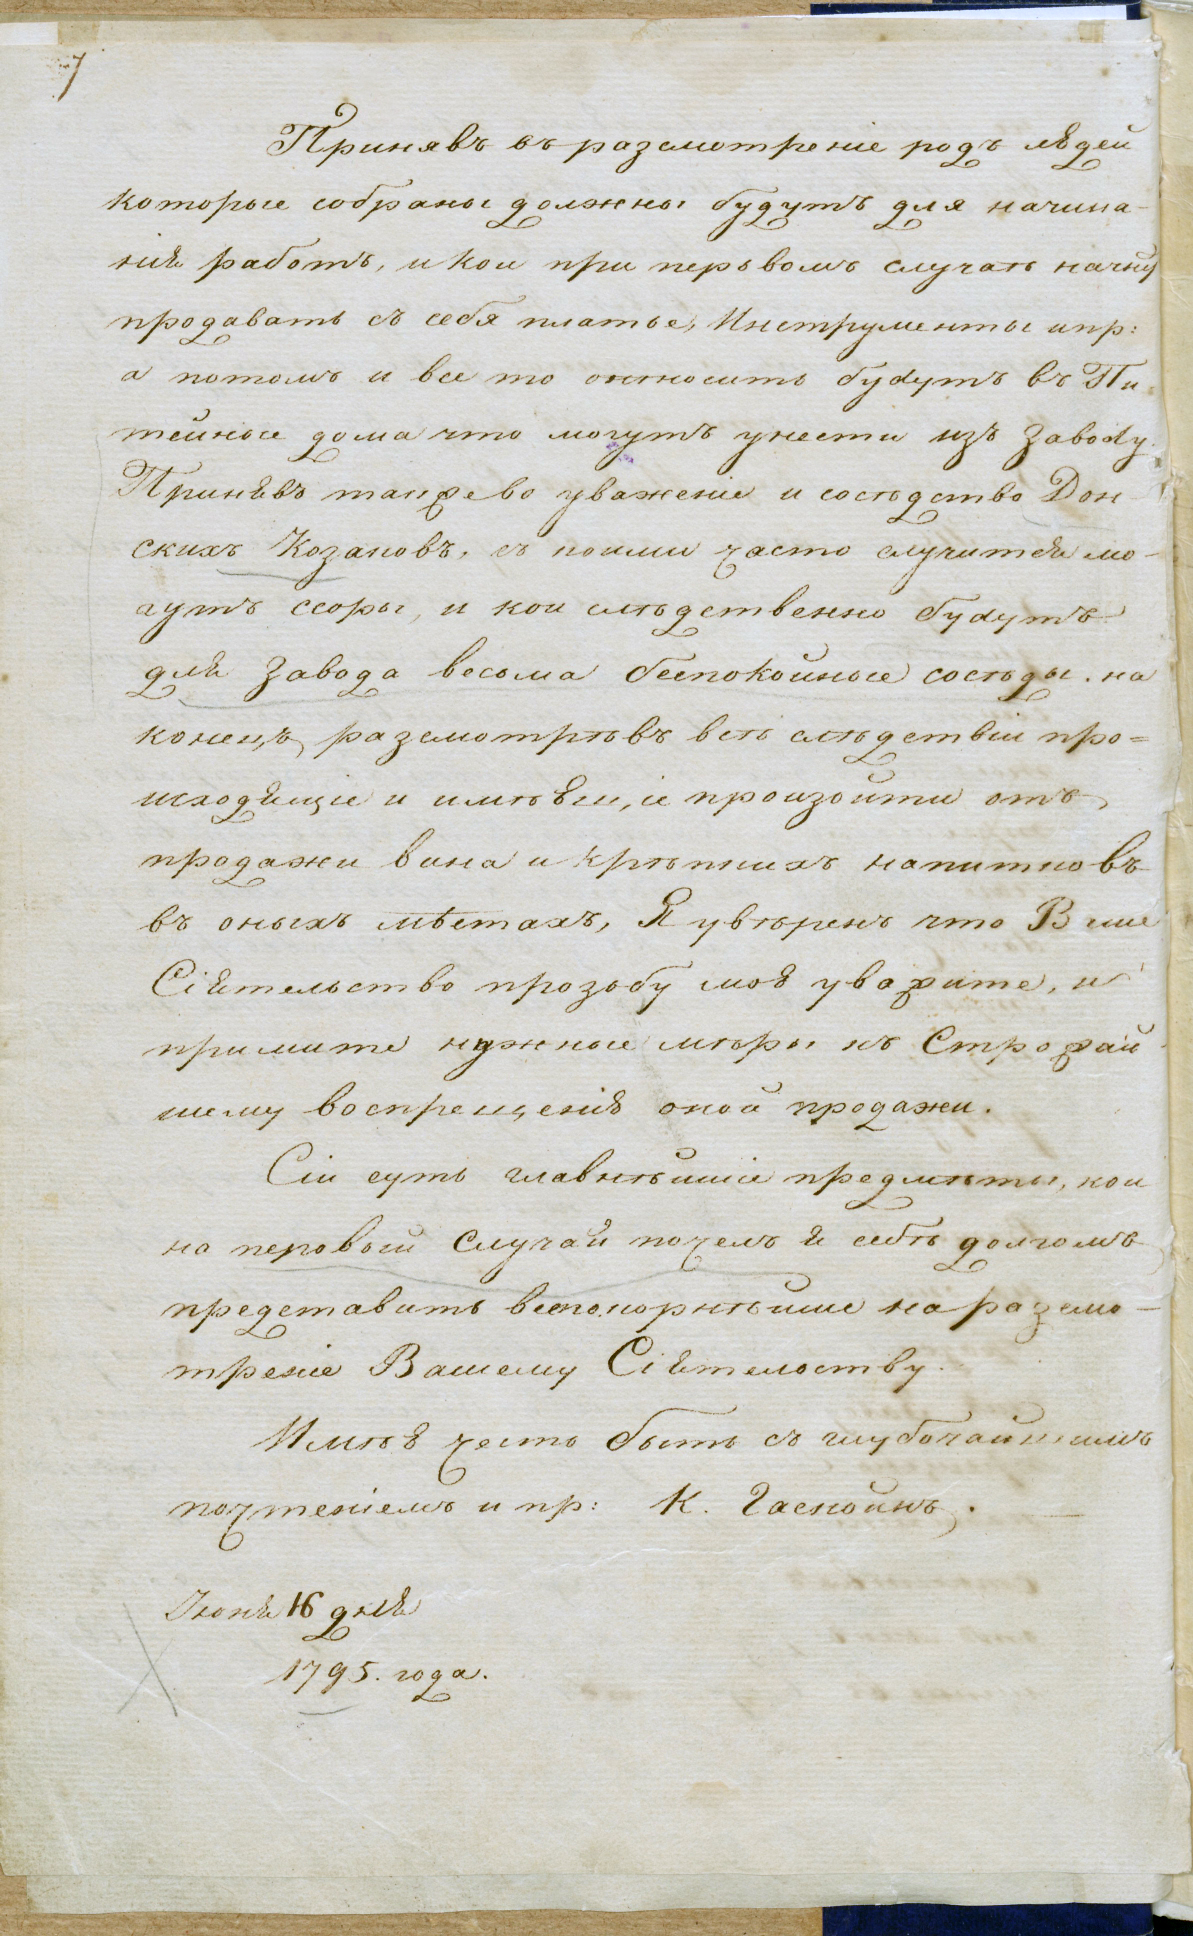 7
Принявъ въ разсмотреніе родъ людей
которые собраны должны будутъ для начина-
нія работъ, и кои при первомъ случаѣ начну
продавать съ себя платье, Инструменты и пр:
а потомъ и все то относить будутъ въ Пи-
тейные дома что могутъ унести изъ заводу.
Принявъ также во уваженіе и сосѣдство Дон-
скихъ Козаковъ, съ коими часто случится мо-
гутъ ссоры, и кои слѣдственно будутъ
для завода весьма беспокойные сосѣды. на
конецъ, разсмотрѣвъ всѣ слѣдствіи про=
исходящіе и имѣющіе произойти отъ
продажи вина и крѣпкихъ напитковъ
въ оныхъ мѣстахъ, Я увѣренъ что Ваше
Сіятельство прозьбу мою уважите, и
примите нужные мѣры къ Строжай
шему воспрещенію оной продажи.
Сіи суть главнѣйшіе предмѣты, кои
на первый Случай почелъ я себѣ долгомъ
представить всепокорнѣйше на разсмо-
треніе Вашему Сіятельству.
Имѣю честь быть съ глубочайшимъ
почтеніемъ и пр: К. Гаскойнъ.
Іюня 16 дня
1795. года.